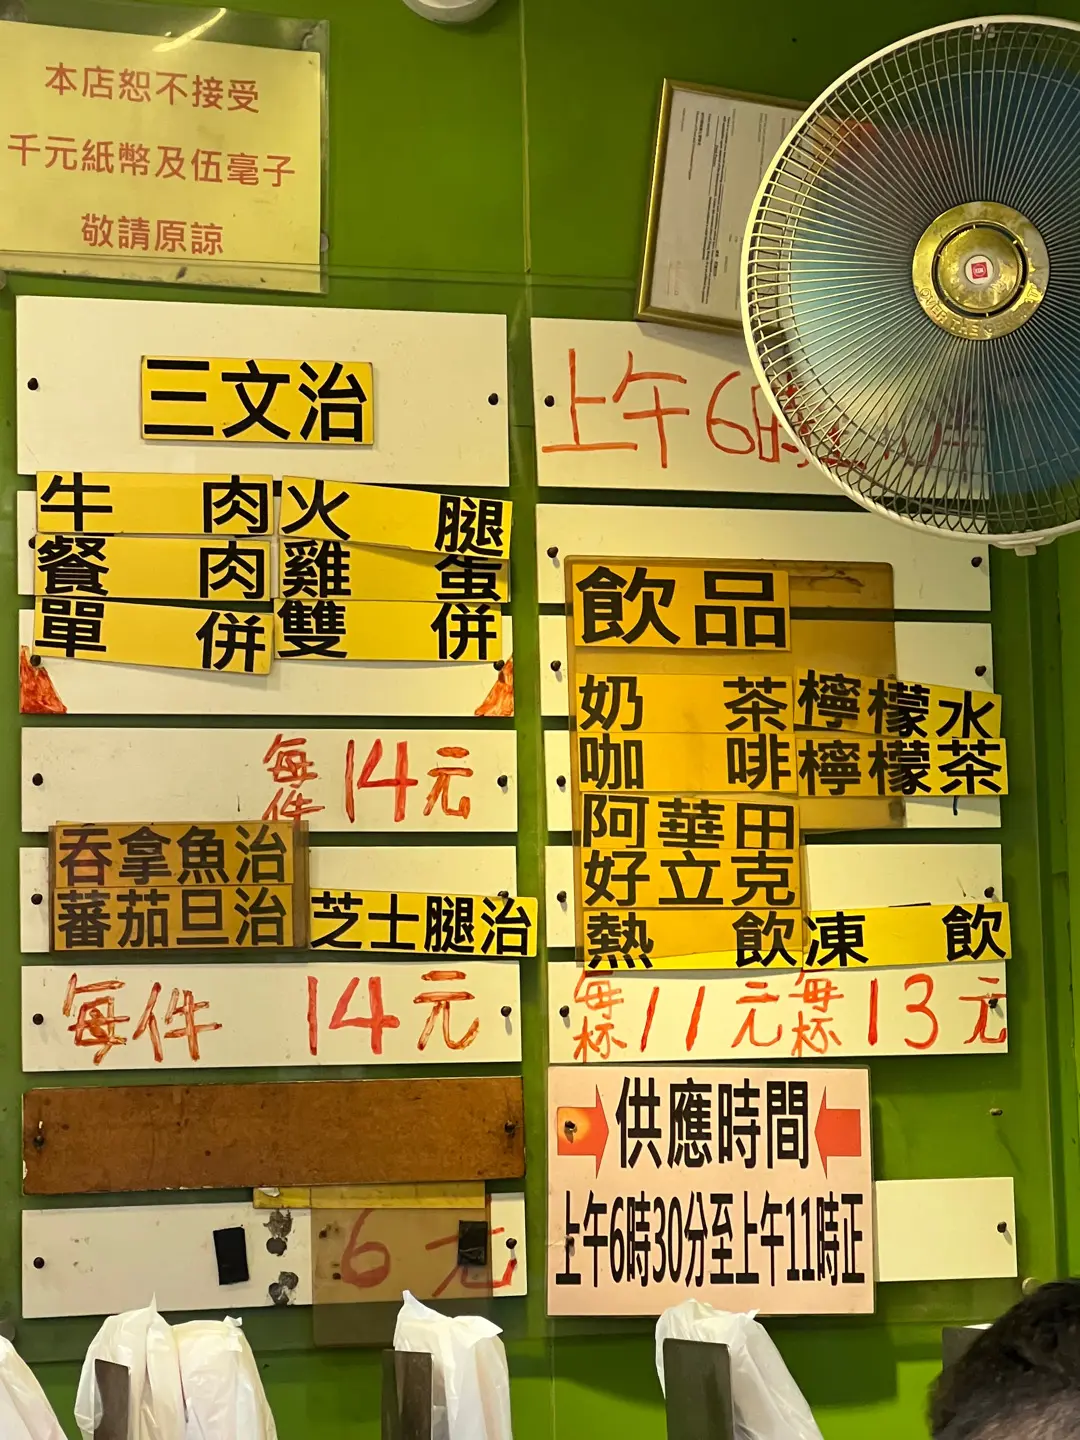 本店恕不接受
千元紙幣及伍毫子
敬請原諒
三文治
牛肉 火腿
餐肉 雞蛋
單併 雙併
每件14元
吞拿魚治
蕃茄旦治 芝士腿治
每件 14元
6元
上午6時
飲品
奶茶 檸檬水
咖啡 檸檬茶
阿華田
好立克
熱飲 凍飲
每杯11元 每杯13元
供應時間
上午6時30分至上午11時正